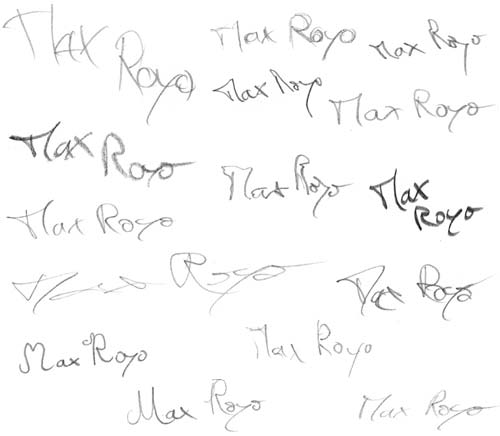 Max Royo
Max Royo
Max Royo
Max Royo
Max Royo
Max Royo
Max Royo
Max
Royo
Max Royo
Max Royo
Max Royo
Max Royo
Max Royo
Max Royo
Max Royo